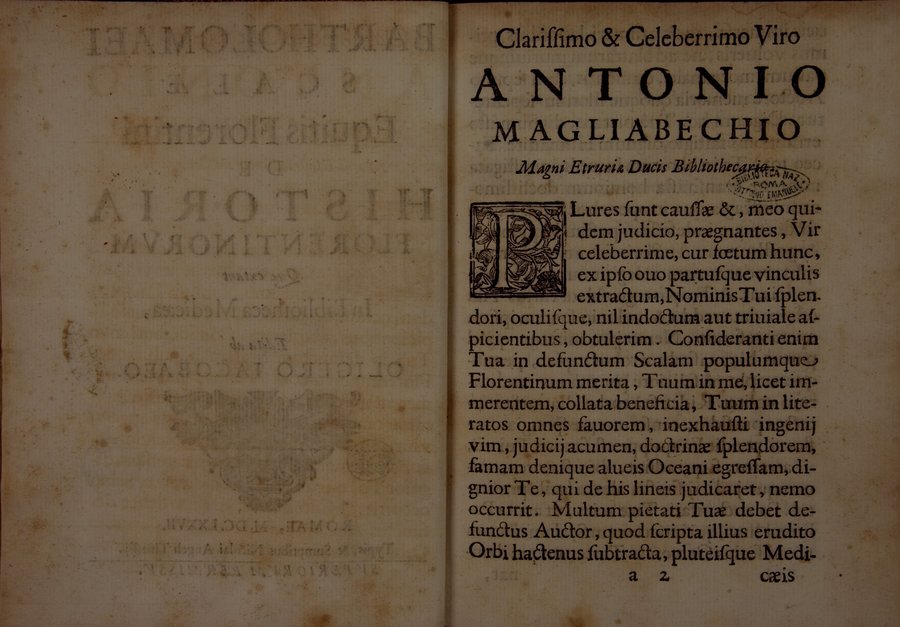 Clariſſimo & Celeberrimo Viro
ANTONIO
MAGLIABECHIO
Magni Etruriæ Ducis Bibliothecario.
BIBLIOTECA NAZ.
ROMA
VITTORIO EMANUELE
PLures ſunt cauſſæ &, meo qui-
dem judicio, prægnantes, Vir
celeberrime, cur fœtum hunc,
ex ipſo ouo partuſque vinculis
extractum, Nominis Tui ſplen-
dori, oculiſque, nil indoctum aut triuiale aſ-
picientibus, obtulerim. Conſideranti enim
Tua in defunctum Scalam populumque
Florentinum merita, Tuum in me, licet im-
merentem, collata beneficia, Tuum in lite-
ratos omnes fauorem, inexhauſti ingenij
vim, judicij acumen, doctrinæ ſplendorem,
famam denique alueis Oceani egreſſam, di-
gnior Te, qui de his lineis judicaret, nemo
occurrit. Multum pietati Tuæ debet de-
functus Auctor, quod ſcripta illius erudito
Orbi hactenus ſubtracta, pluteiſque Medi-
a 2 cæis